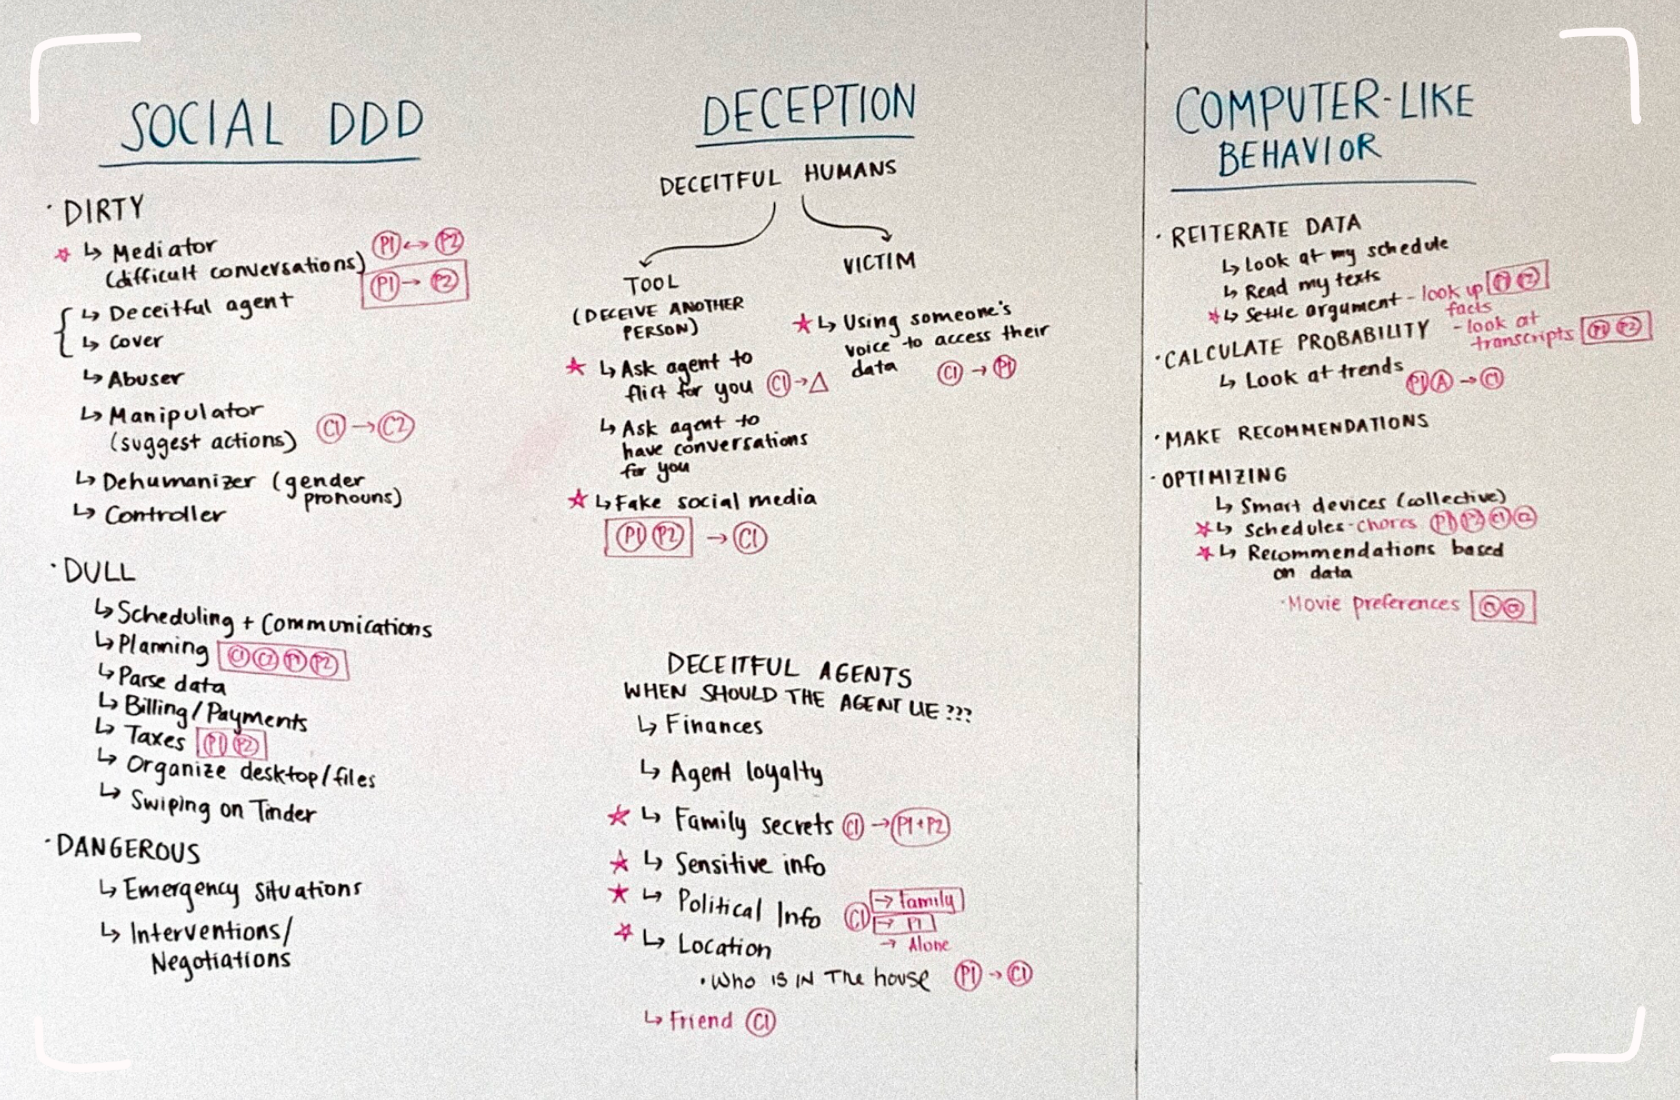 SOCIAL DDD
· DIRTY
☆ ↳ Mediator
(difficult conversations)
P1 ↔ P2
P1 → P2
↳ Deceitful agent
↳ Cover
↳ Abuser
↳ Manipulator
(suggest actions)
C1 → C2
↳ Dehumanizer (gender
pronouns)
↳ Controller
· DULL
↳ Scheduling + Communications
↳ Planning C1 C2 P1 P2
↳ Parse data
↳ Billing/Payments
↳ Taxes P1 P2
↳ Organize desktop/files
↳ Swiping on Tinder
· DANGEROUS
↳ Emergency situations
↳ Interventions/
Negotiations
DECEPTION
DECEITFUL HUMANS
TOOL
(DECEIVE ANOTHER
PERSON)
★ ↳ Ask agent to
flirt for you C1 → △
↳ Ask agent to
have conversations
for you
☆ ↳ Fake social media
P1 P2 → C1
VICTIM
★ ↳ Using someone's
voice to access their
data C1 → P1
DECEITFUL AGENTS
WHEN SHOULD THE AGENT LIE ???
↳ Finances
↳ Agent loyalty
☆ ↳ Family secrets C1 → P1+P2
☆ ↳ Sensitive info
★ ↳ Political Info C1 → family
→ P1
→ Alone
☆ ↳ Location
· Who IS IN The house P1 → C1
↳ Friend C1
COMPUTER-LIKE
BEHAVIOR
· REITERATE DATA
↳ Look at my schedule
↳ Read my texts
☆ ↳ Settle argument - look up P1 P2
facts
- look at
transcripts P1 P2
· CALCULATE PROBABILITY
↳ Look at trends P1 A → C1
· MAKE RECOMMENDATIONS
· OPTIMIZING
↳ Smart devices (collective)
☆ ↳ Schedules - chores P1 P2 C1 C2
☆ ↳ Recommendations based
on data
· Movie preferences